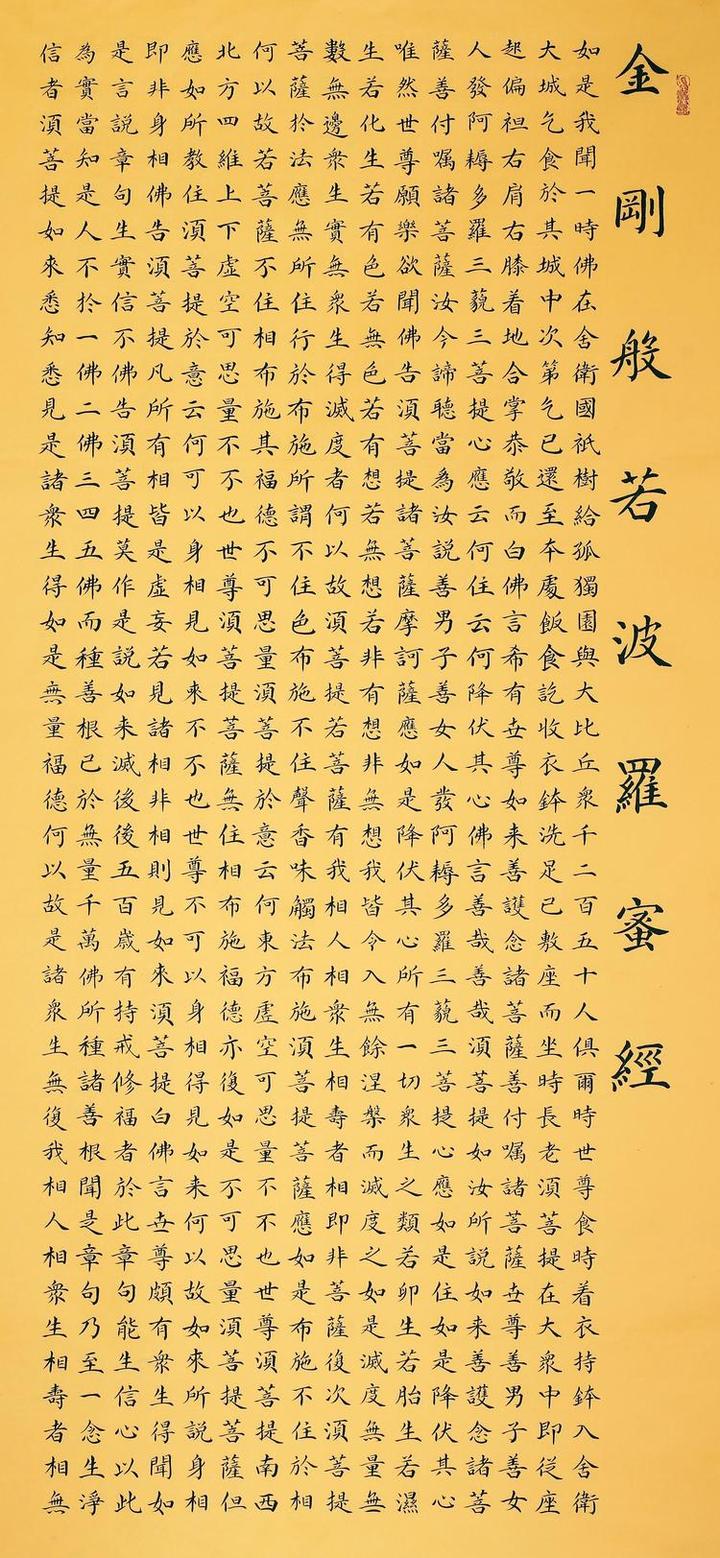 金剛般若波羅蜜經
如是我聞一時佛在舍衛國祇樹給孤獨園與大比丘衆千二百五十人俱爾時世尊食時着衣持鉢入舍衛
大城乞食於其城中次第乞已還至本處飯食訖收衣鉢洗足已敷座而坐時長老湏菩提在大衆中即從座
起偏袒右肩右膝着地合掌恭敬而白佛言希有世尊如来善護念諸菩薩善付嘱諸菩薩世尊善男子善女
人發阿耨多羅三藐三菩提心應云何住云何降伏其心佛言善哉善哉湏菩提如汝所説如来善護念諸菩
薩善付嘱諸菩薩汝今諦聽當為汝説善男子善女人發阿耨多羅三藐三菩提心應如是住如是降伏其心
唯然世尊願樂欲聞佛告湏菩提諸菩薩摩訶薩應如是降伏其心所有一切衆生之類若卵生若胎生若濕
生若化生若有色若無色若有想若無想若非有想非無想我皆令入無餘涅槃而滅度之如是滅度無量無
數無邊衆生實無衆生得滅度者何以故湏菩提若菩薩有我相人相衆生相壽者相即非菩薩復次湏菩提
菩薩於法應無所住行於布施所謂不住色布施不住聲香味觸法布施湏菩提菩薩應如是布施不住於相
何以故若菩薩不住相布施其福德不可思量湏菩提於意云何東方虛空可思量不不也世尊湏菩提南西
北方四維上下虛空可思量不不也世尊湏菩提菩薩無住相布施福德亦復如是不可思量湏菩提菩薩但
應如所教住湏菩提於意云何可以身相見如来不不也世尊不可以身相得見如来何以故如來所説身相
即非身相佛告湏菩提凡所有相皆是虛妄若見諸相非相則見如來湏菩提白佛言世尊頗有衆生得聞如
是言説章句生實信不佛告湏菩提莫作是説如来滅後後五百歲有持戒修福者於此章句能生信心以此
為實當知是人不於一佛二佛三四五佛而種善根已於無量千萬佛所種諸善根聞是章句乃至一念生淨
信者湏菩提如來悉知悉見是諸衆生得如是無量福德何以故是諸衆生無復我相人相衆生相壽者相無